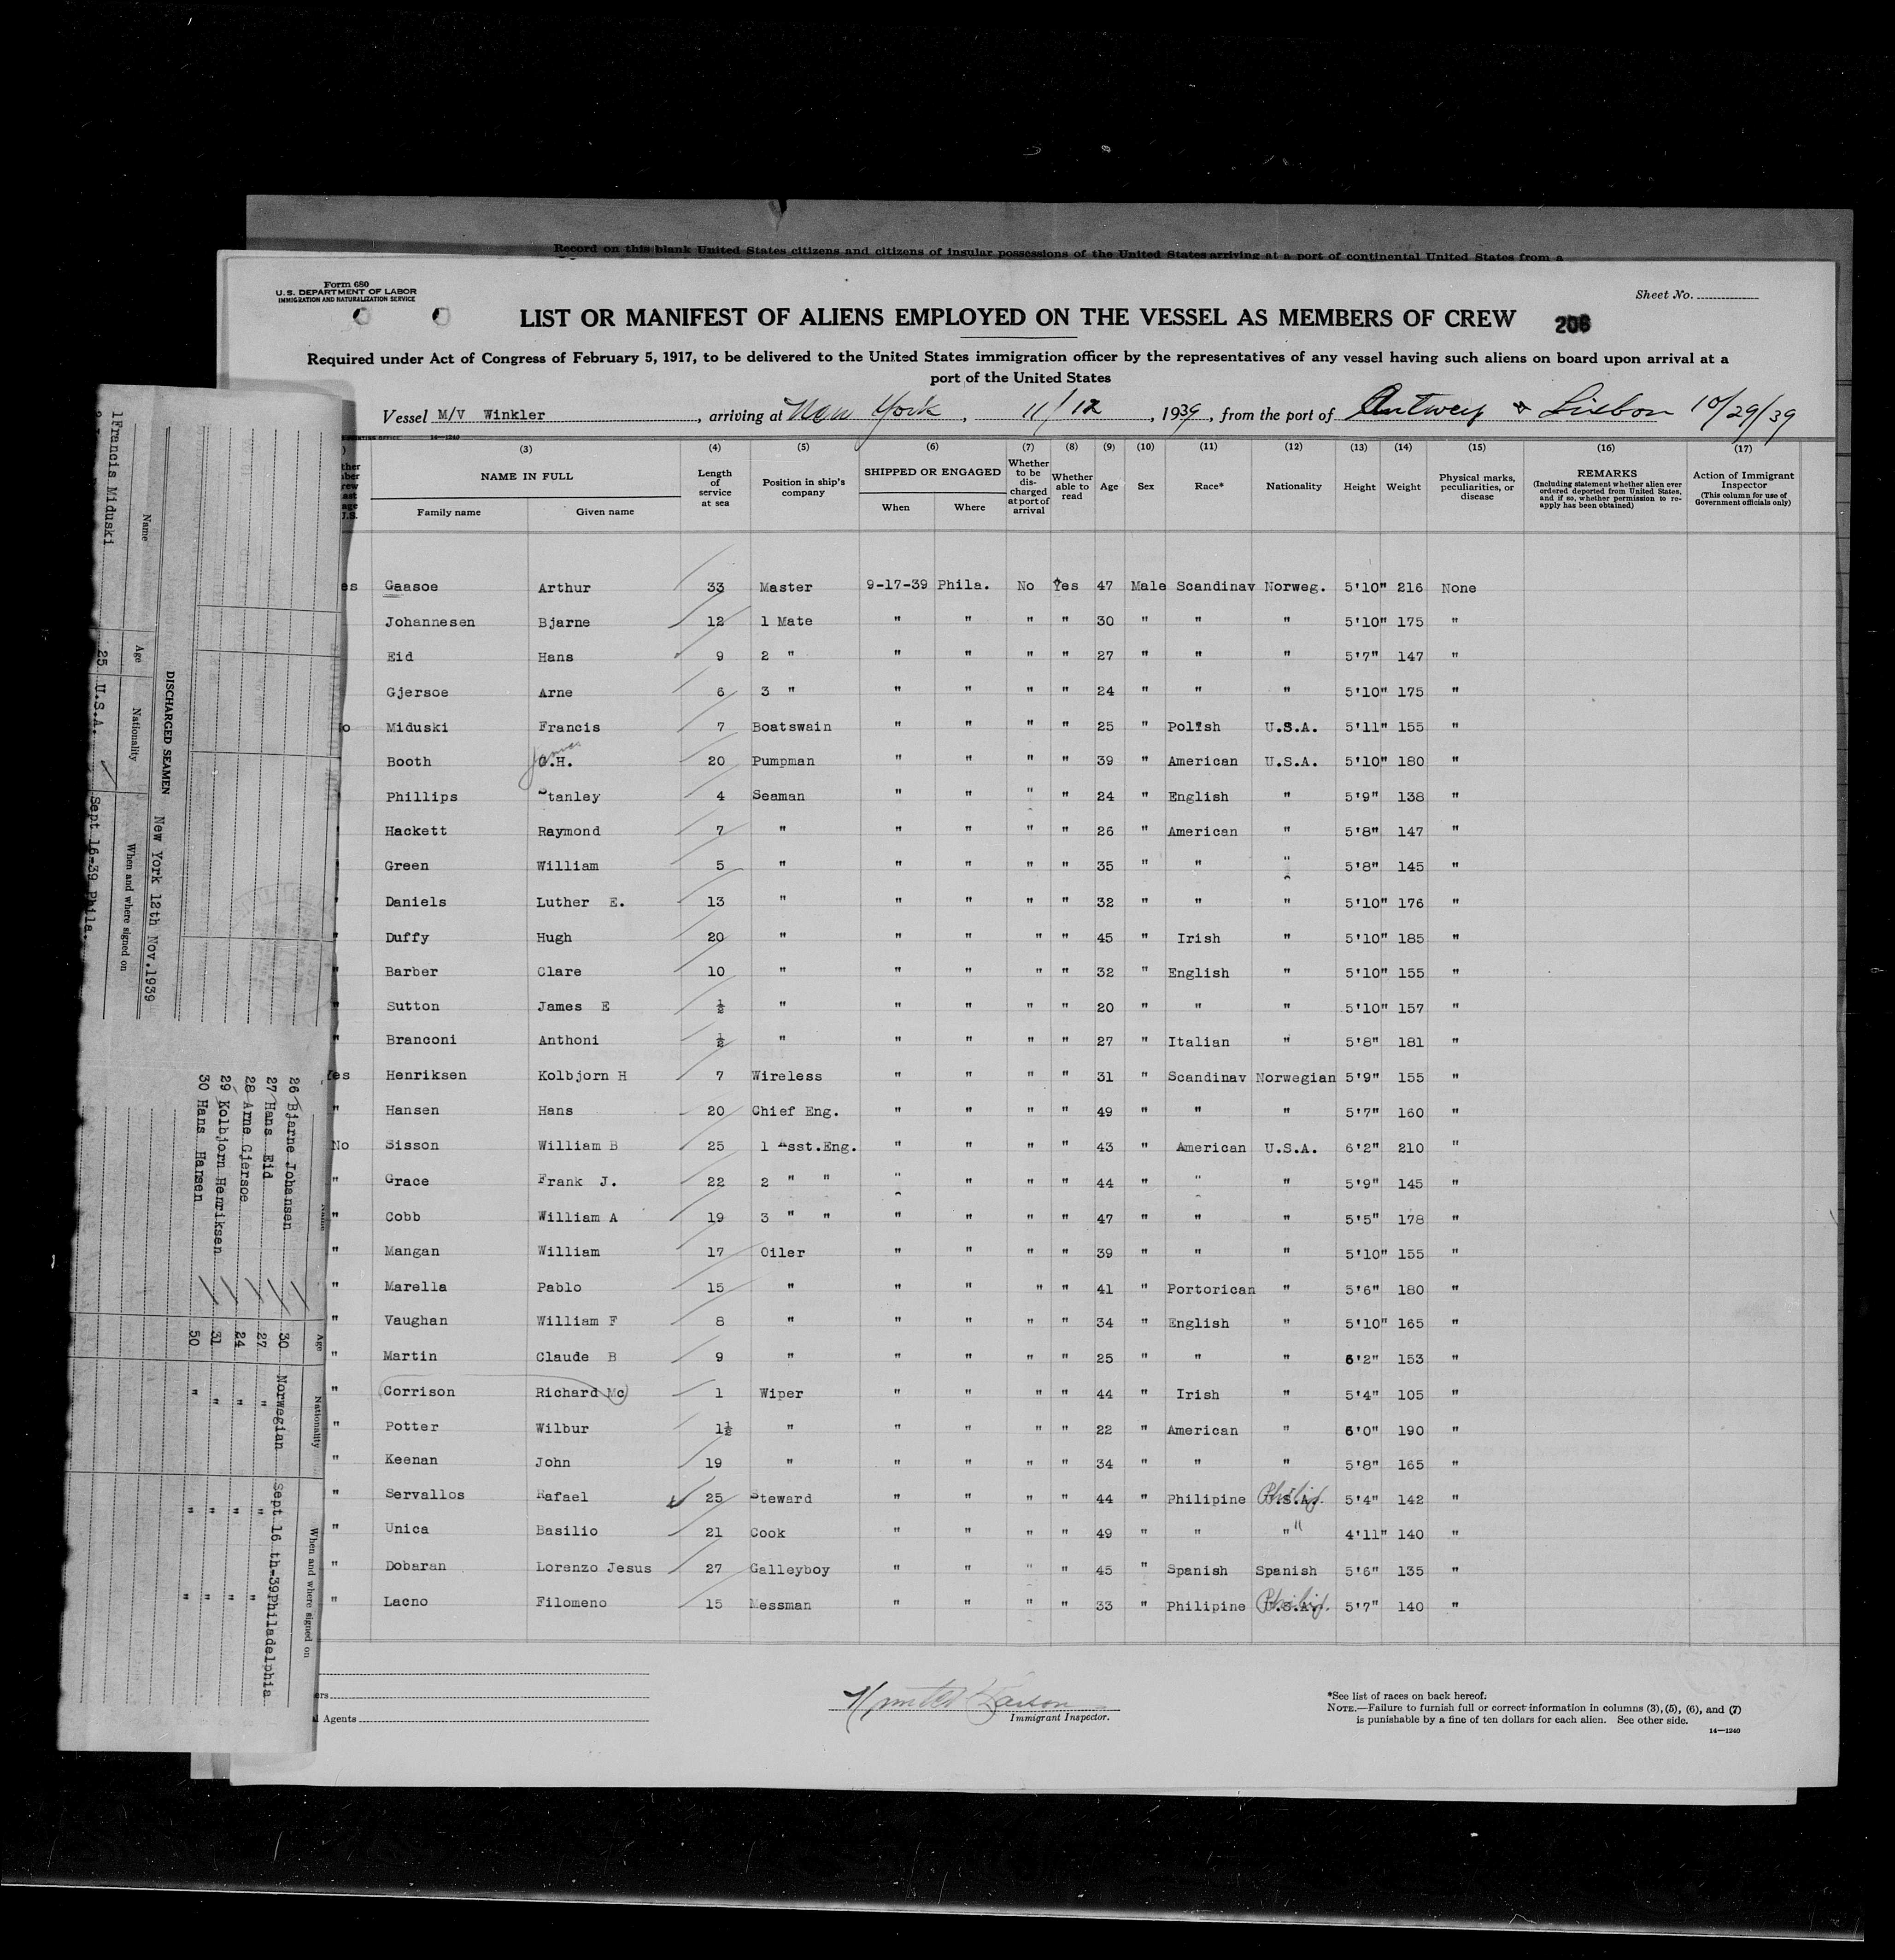 Record on this blank United States citizens and citizens of insular possessions of the United States arriving at a port of continental United States from a
Form 680
U. S. DEPARTMENT OF LABOR
IMMIGRATION AND NATURALIZATION SERVICE
Sheet No.
LIST OR MANIFEST OF ALIENS EMPLOYED ON THE VESSEL AS MEMBERS OF CREW 206
Required under Act of Congress of February 5, 1917, to be delivered to the United States immigration officer by the representatives of any vessel having such aliens on board upon arrival at a
port of the United States
Vessel M/V Winkler, arriving at New York, 11/12, 1939, from the port of Antwerp & Lisbon 10/29/39
14—1240
(3) (4) (5) (6) (7) (8) (9) (10) (11) (12) (13) (14) (15) (16) (17)
NAME IN FULL
Family name Given name
Length of service at sea
Position in ship's company
SHIPPED OR ENGAGED
When Where
Whether to be discharged at port of arrival
Whether able to read
Age
Sex
Race*
Nationality
Height
Weight
Physical marks, peculiarities, or disease
REMARKS
(Including statement whether alien ever ordered deported from United States, and if so, whether permission to re-apply has been obtained)
Action of Immigrant Inspector
(This column for use of Government officials only)
es Gaasoe Arthur 33 Master 9-17-39 Phila. No Yes 47 Male Scandinav Norweg. 5'10" 216 None
Johannesen Bjarne 12 1 Mate " " " " 30 " " " 5'10" 175 "
Eid Hans 9 2 " " " " " 27 " " " 5'7" 147 "
Gjersoe Arne 6 3 " " " " " 24 " " " 5'10" 175 "
o Miduski Francis 7 Boatswain " " " " 25 " Polish U.S.A. 5'11" 155 "
Booth James H. 20 Pumpman " " " " 39 " American U.S.A. 5'10" 180 "
Phillips Stanley 4 Seaman " " " " 24 " English " 5'9" 138 "
Hackett Raymond 7 " " " " " 26 " American " 5'8" 147 "
Green William 5 " " " " " 35 " " " 5'8" 145 "
Daniels Luther E. 13 " " " " " 32 " " " 5'10" 176 "
" Duffy Hugh 20 " " " " " 45 " Irish " 5'10" 185 "
" Barber Clare 10 " " " " " 32 " English " 5'10" 155 "
" Sutton James E ½ " " " " " 20 " " " 5'10" 157 "
" Branconi Anthoni ½ " " " " " 27 " Italian " 5'8" 181 "
Yes Henriksen Kolbjorn H 7 Wireless " " " " 31 " Scandinav Norwegian 5'9" 155 "
" Hansen Hans 20 Chief Eng. " " " " 49 " " " 5'7" 160 "
No Sisson William B 25 1 Asst.Eng. " " " " 43 " American U.S.A. 6'2" 210 "
" Grace Frank J. 22 2 " " " " " " 44 " " " 5'9" 145 "
" Cobb William A 19 3 " " " " " " 47 " " " 5'5" 178 "
" Mangan William 17 Oiler " " " " 39 " " " 5'10" 155 "
" Marella Pablo 15 " " " " " 41 " Portorican " 5'6" 180 "
" Vaughan William F 8 " " " " " 34 " English " 5'10" 165 "
" Martin Claude B 9 " " " " " 25 " " " 6'2" 153 "
" Corrison Richard Mc 1 Wiper " " " " 44 " Irish " 5'4" 105 "
" Potter Wilbur 1½ " " " " " 22 " American " 6'0" 190 "
" Keenan John 19 " " " " " 34 " " " 5'8" 165 "
" Servallos Rafael 25 Steward " " " " 44 " Philipine U.S.A. Philip. 5'4" 142 "
" Unica Basilio 21 Cook " " " " 49 " " " " 4'11" 140 "
" Dobaran Lorenzo Jesus 27 Galleyboy " " " " 45 " Spanish Spanish 5'6" 135 "
" Lacno Filomeno 15 Messman " " " " 33 " Philipine U.S.A. Philip. 5'7" 140 "
ers
l Agents
Immigrant Inspector.
*See list of races on back hereof.
NOTE.—Failure to furnish full or correct information in columns (3), (5), (6), and (7)
is punishable by a fine of ten dollars for each alien. See other side.
14—1240
DISCHARGED SEAMEN New York 12th Nov.1939
Name Age Nationality When and where signed on
1 Francis Miduski 25 U.S.A. Sept 16-39 Phila.
Name Age Nationality When and where signed on
26 Bjarne Johansen 30 Norwegian Sept 16 th-39Philadelphia
27 Hans Eid 27 " " "
28 Arne Gjersoe 24 " " "
29 Kolbjorn Henriksen 31 " " "
30 Hans Hansen 50 " " "